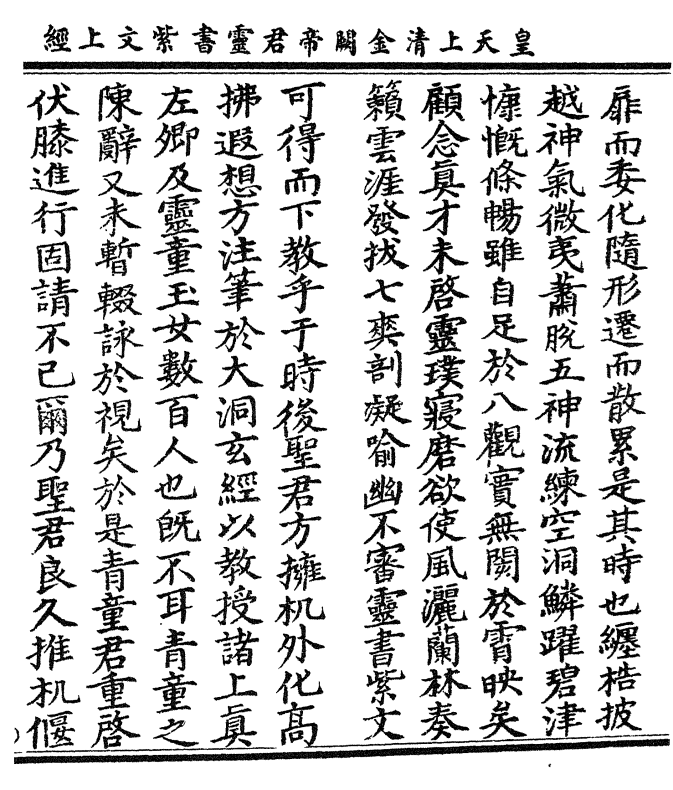 皇天上清金闕帝君靈書紫文上經
扉而委化隨形遷而散累是其時也纏梏披
越神氣微夷蕭脫五神流練空洞鱗躍碧津
慷慨條暢雖自足於八觀實無闕於霄映矣
顧念真才未啓靈璞寢磨欲使風灑蘭林奏
籟雲涯發拔七爽剖凝喻幽不審靈書紫文
可得而下教乎于時後聖君方擁机外化高
拂遐想方注筆於大洞玄經以教授諸上真
左卿及靈童玉女數百人也旣不耳青童之
陳辭又未暫輟詠於視矣於是青童君重啓
伏膝進行固請不已爾乃聖君良久推机偃